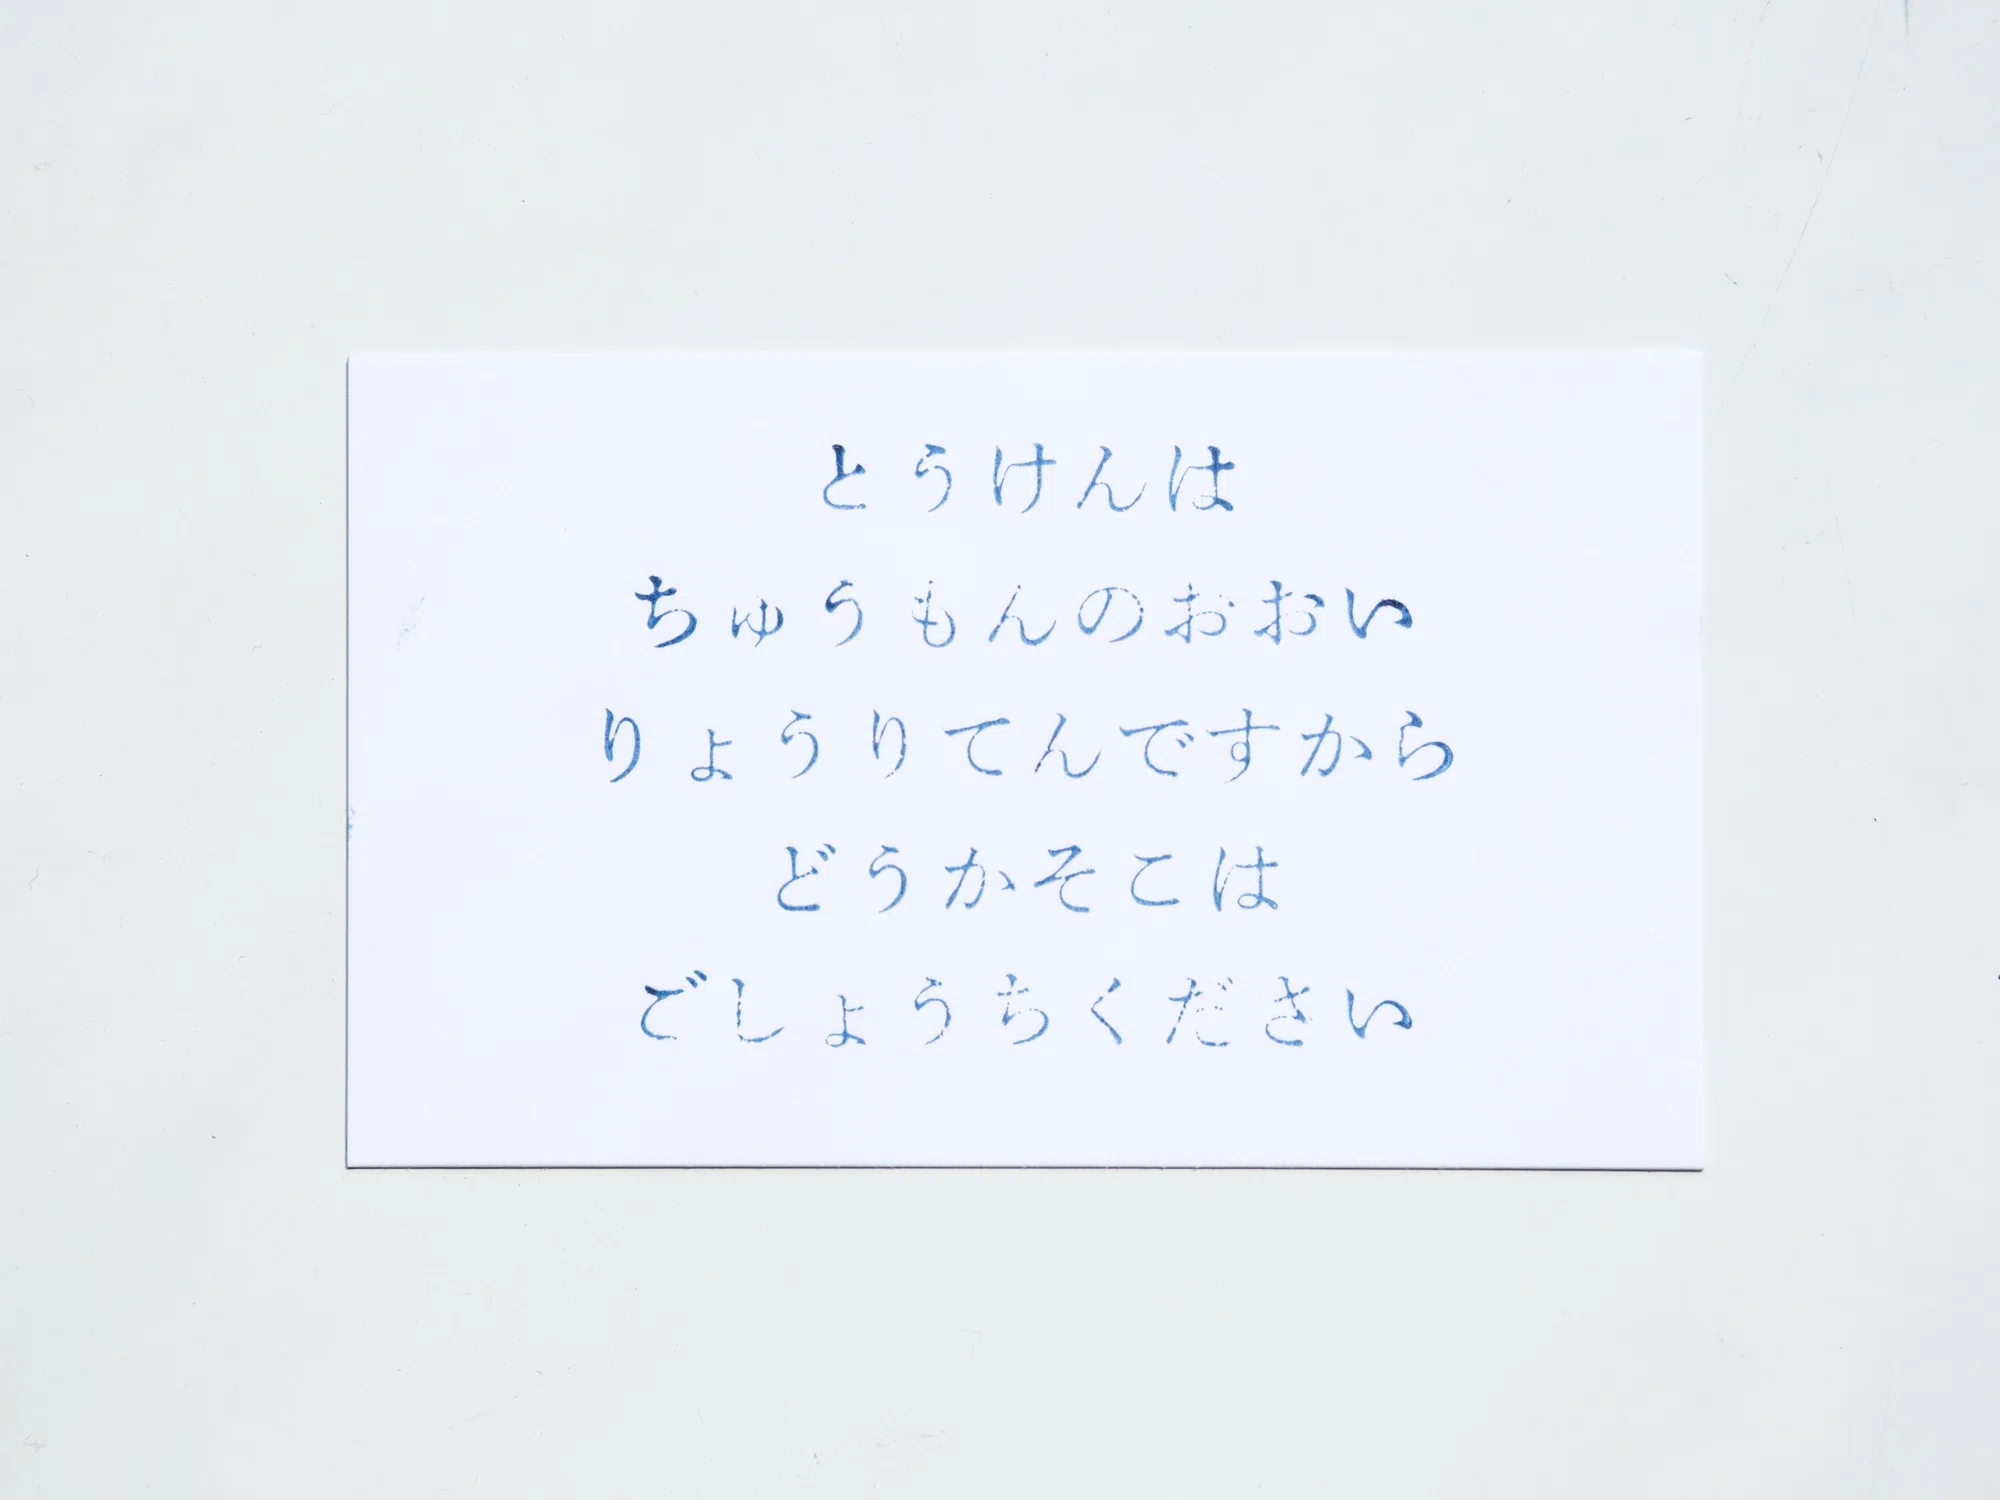 とうけんは
ちゅうもんのおおい
りょうりてんですから
どうかそこは
ごしょうちください